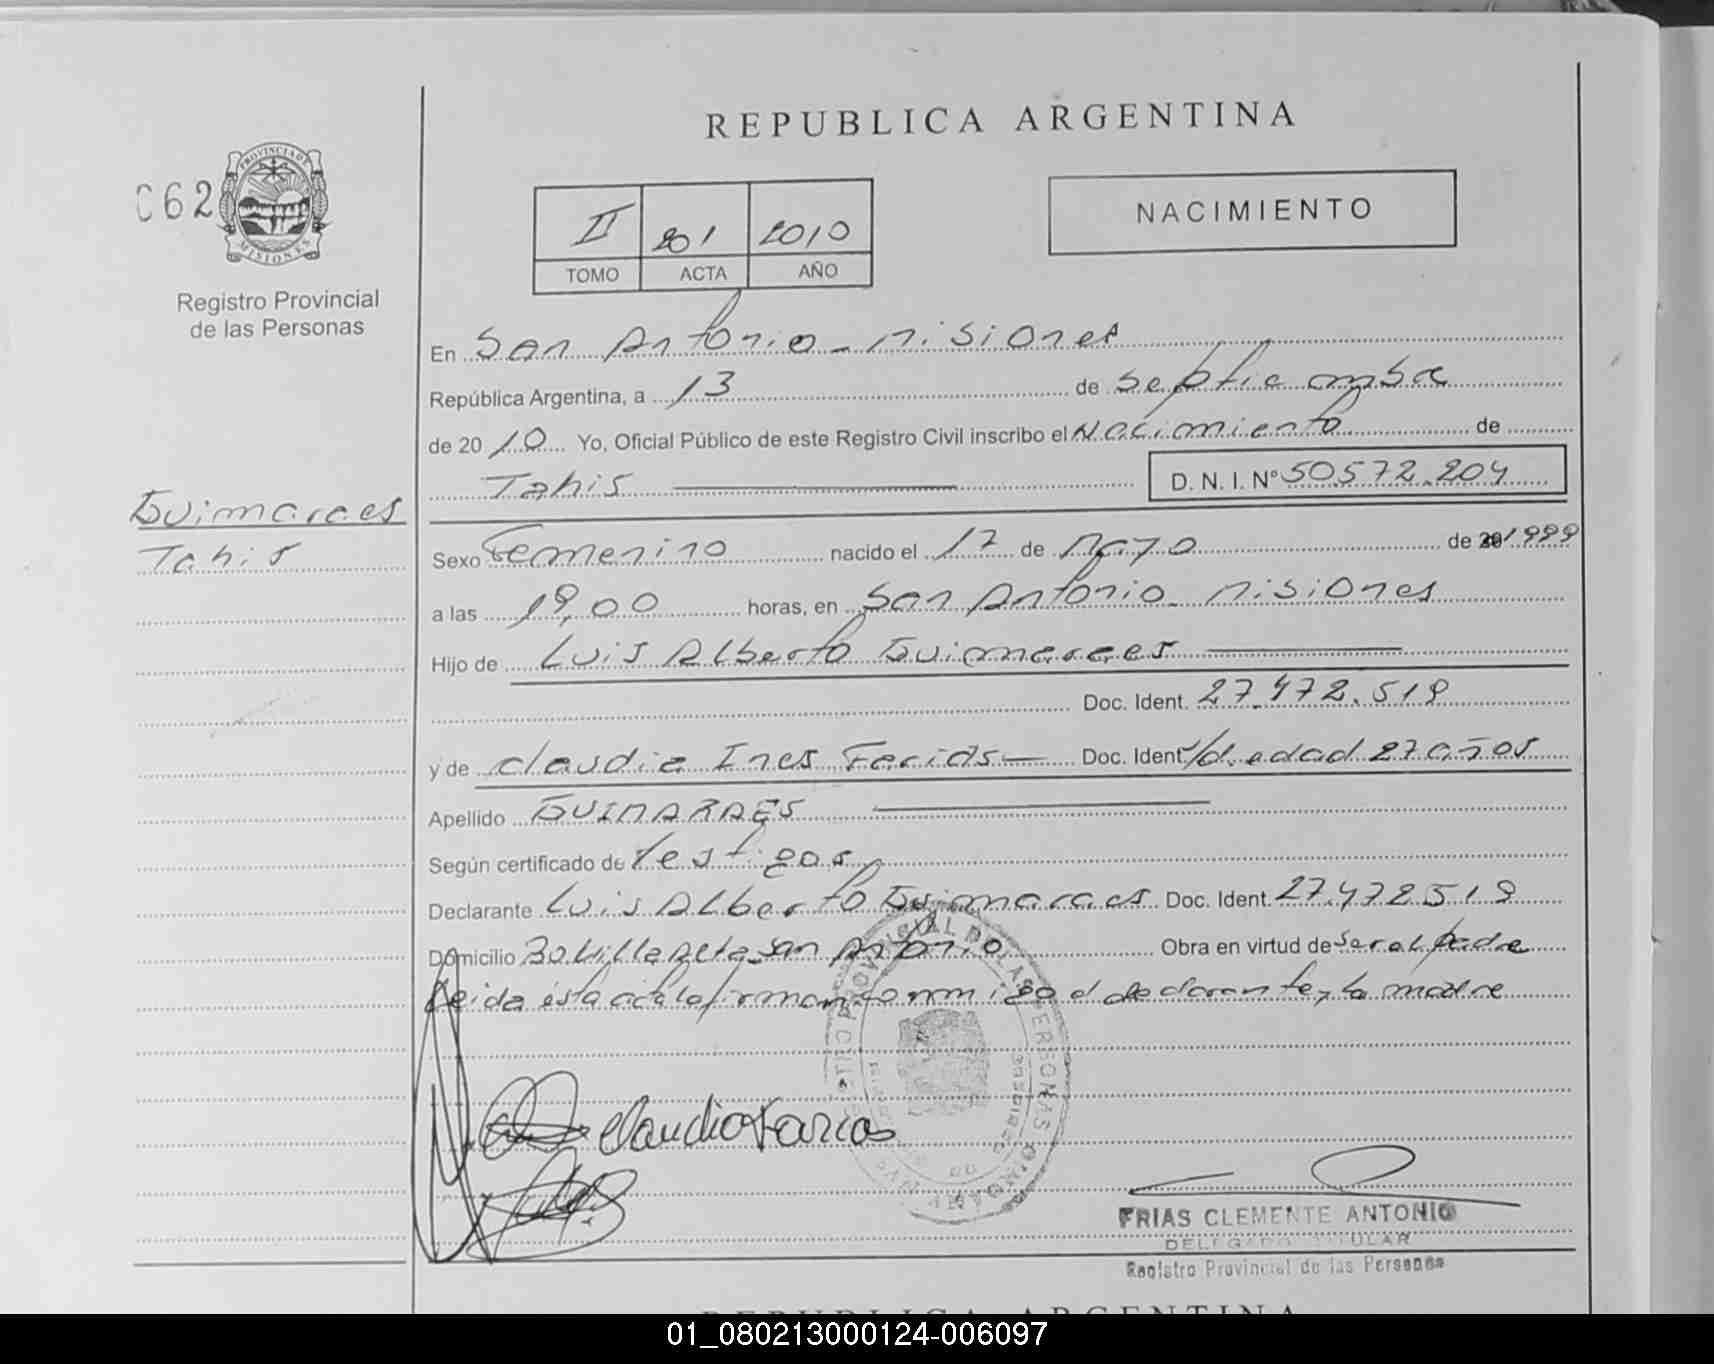 REPUBLICA ARGENTINA
062
PROVINCIA DE
MISIONES
Registro Provincial
de las Personas
II 201 2010
TOMO ACTA AÑO
NACIMIENTO
En San Antonio - Misiones
República Argentina, a 13 de Septiembre
de 20 10 Yo, Oficial Público de este Registro Civil inscribo el Nacimiento de
Tahis D. N. I. Nº 50.572.204
Guimaraes
Tahis
Sexo Femenino nacido el 17 de Mayo de 1999
a las 19,00 horas, en San Antonio - Misiones
Hijo de Luis Alberto Guimaraes
Doc. Ident. 27.472.519
y de Claudia Ines Farias Doc. Ident. edad 27 años
Apellido GUIMARAES
Según certificado de Testigos
Declarante Luis Alberto Guimaraes Doc. Ident. 27.472519
Domicilio Bo Villa Alta San Antonio Obra en virtud de Ser el padre
leida esta acta la firman conmigo el declarante y la madre
Claudia Farias
FRIAS CLEMENTE ANTONIO
DELEGADO TITULAR
Registro Provincial de las Personas
REPUBLICA ARGENTINA
01_080213000124-006097